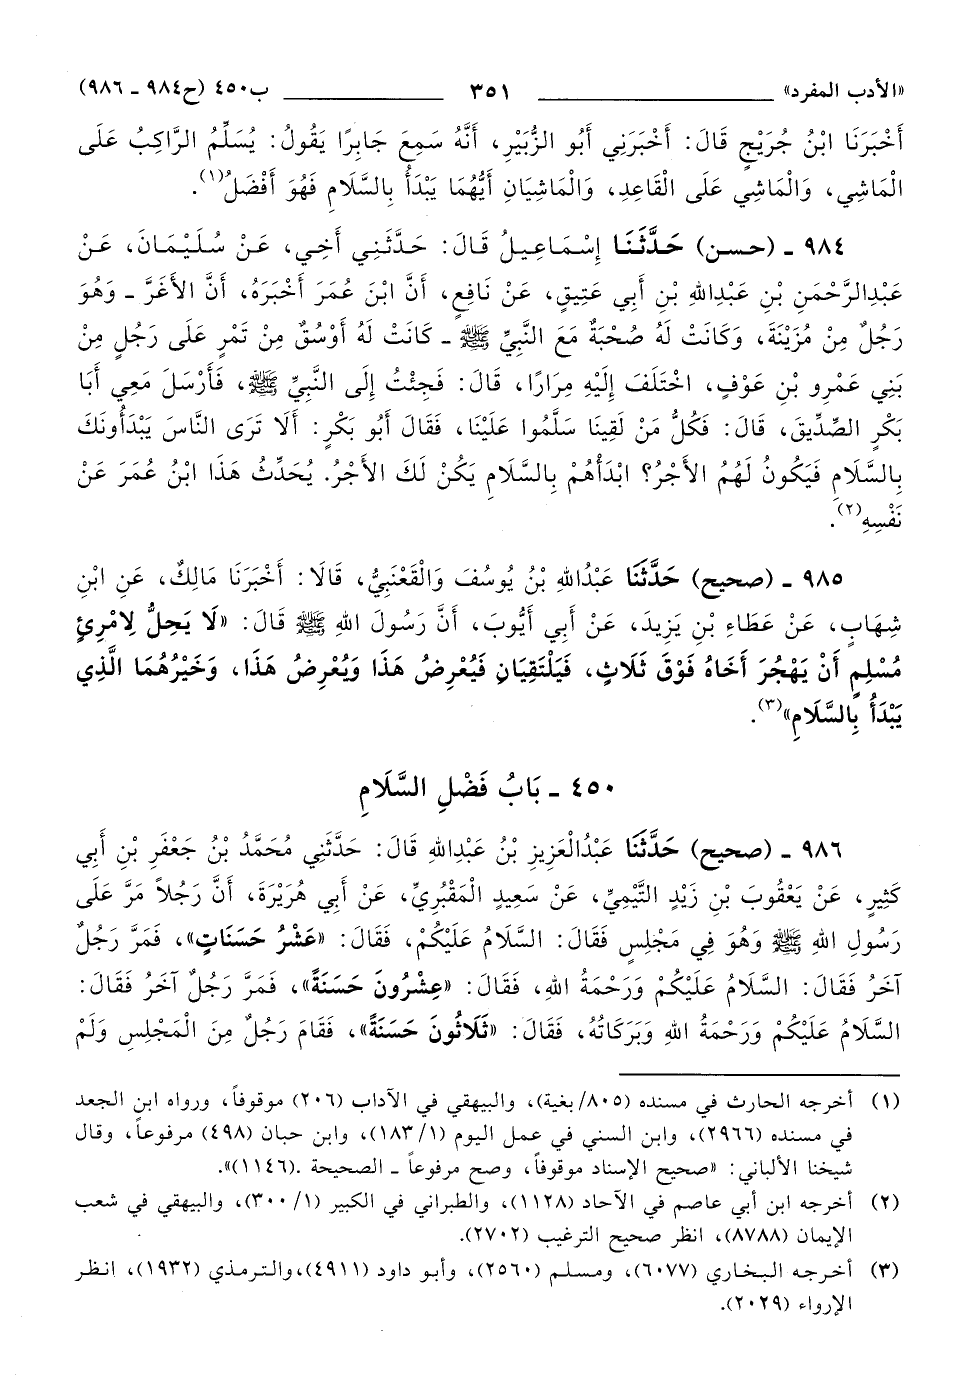 «الأدب المفرد» ٣٥١ ب٤٥٠ (ح٩٨٤ ـ ٩٨٦)
أَخْبَرَنَا ابْنُ جُرَيْجٍ قَالَ: أَخْبَرَنِي أَبُو الزُّبَيْرِ، أَنَّهُ سَمِعَ جَابِرًا يَقُولُ: يُسَلِّمُ الرَّاكِبُ عَلَى
الْمَاشِي، وَالْمَاشِي عَلَى الْقَاعِدِ، وَالْمَاشِيَانِ أَيُّهُمَا يَبْدَأُ بِالسَّلَامِ فَهُوَ أَفْضَلُ(١).
٩٨٤ ـ (حسن) حَدَّثَنَا إِسْمَاعِيلُ قَالَ: حَدَّثَنِي أَخِي، عَنْ سُلَيْمَانَ، عَنْ
عَبْدِالرَّحْمَنِ بْنِ عَبْدِاللهِ بْنِ أَبِي عَتِيقٍ، عَنْ نَافِعٍ، أَنَّ ابْنَ عُمَرَ أَخْبَرَهُ، أَنَّ الأَغَرَّ ـ وَهُوَ
رَجُلٌ مِنْ مُزَيْنَةَ، وَكَانَتْ لَهُ صُحْبَةٌ مَعَ النَّبِيِّ ﷺ ـ كَانَتْ لَهُ أَوْسُقٌ مِنْ تَمْرٍ عَلَى رَجُلٍ مِنْ
بَنِي عَمْرِو بْنِ عَوْفٍ، اخْتَلَفَ إِلَيْهِ مِرَارًا، قَالَ: فَجِئْتُ إِلَى النَّبِيِّ ﷺ، فَأَرْسَلَ مَعِي أَبَا
بَكْرٍ الصِّدِّيقَ، قَالَ: فَكُلُّ مَنْ لَقِينَا سَلَّمُوا عَلَيْنَا، فَقَالَ أَبُو بَكْرٍ: أَلَا تَرَى النَّاسَ يَبْدَأُونَكَ
بِالسَّلَامِ فَيَكُونُ لَهُمُ الأَجْرُ؟ ابْدَأْهُمْ بِالسَّلَامِ يَكُنْ لَكَ الأَجْرُ. يُحَدِّثُ هَذَا ابْنُ عُمَرَ عَنْ
نَفْسِهِ(٢).
٩٨٥ ـ (صحيح) حَدَّثَنَا عَبْدُاللهِ بْنُ يُوسُفَ وَالْقَعْنَبِيُّ، قَالَا: أَخْبَرَنَا مَالِكٌ، عَنِ ابْنِ
شِهَابٍ، عَنْ عَطَاءِ بْنِ يَزِيدَ، عَنْ أَبِي أَيُّوبَ، أَنَّ رَسُولَ اللهِ ﷺ قَالَ: «لَا يَحِلُّ لِامْرِئٍ
مُسْلِمٍ أَنْ يَهْجُرَ أَخَاهُ فَوْقَ ثَلَاثٍ، فَيَلْتَقِيَانِ فَيُعْرِضُ هَذَا وَيُعْرِضُ هَذَا، وَخَيْرُهُمَا الَّذِي
يَبْدَأُ بِالسَّلَامِ»(٣).
٤٥٠ ـ بَابُ فَضْلِ السَّلَامِ
٩٨٦ ـ (صحيح) حَدَّثَنَا عَبْدُالْعَزِيزِ بْنُ عَبْدِاللهِ قَالَ: حَدَّثَنِي مُحَمَّدُ بْنُ جَعْفَرِ بْنِ أَبِي
كَثِيرٍ، عَنْ يَعْقُوبَ بْنِ زَيْدٍ التَّيْمِيِّ، عَنْ سَعِيدٍ الْمَقْبُرِيِّ، عَنْ أَبِي هُرَيْرَةَ، أَنَّ رَجُلاً مَرَّ عَلَى
رَسُولِ اللهِ ﷺ وَهُوَ فِي مَجْلِسٍ فَقَالَ: السَّلَامُ عَلَيْكُمْ، فَقَالَ: «عَشْرُ حَسَنَاتٍ»، فَمَرَّ رَجُلٌ
آخَرُ فَقَالَ: السَّلَامُ عَلَيْكُمْ وَرَحْمَةُ اللهِ، فَقَالَ: «عِشْرُونَ حَسَنَةً»، فَمَرَّ رَجُلٌ آخَرُ فَقَالَ:
السَّلَامُ عَلَيْكُمْ وَرَحْمَةُ اللهِ وَبَرَكَاتُهُ، فَقَالَ: «ثَلَاثُونَ حَسَنَةً»، فَقَامَ رَجُلٌ مِنَ الْمَجْلِسِ وَلَمْ
(١) أخرجه الحارث في مسنده (٨٠٥/بغية)، والبيهقي في الآداب (٢٠٦) موقوفاً، ورواه ابن الجعد
في مسنده (٢٩٦٦)، وابن السني في عمل اليوم (١٨٣/١)، وابن حبان (٤٩٨) مرفوعاً، وقال
شيخنا الألباني: «صحيح الإسناد موقوفاً، وصح مرفوعاً ـ الصحيحة .(١١٤٦)».
(٢) أخرجه ابن أبي عاصم في الآحاد (١١٢٨)، والطبراني في الكبير (٣٠٠/١)، والبيهقي في شعب
الإيمان (٨٧٨٨)، انظر صحيح الترغيب (٢٧٠٢).
(٣) أخرجه البخاري (٦٠٧٧)، ومسلم (٢٥٦٠)، وأبو داود (٤٩١١)،والترمذي (١٩٣٢)، انظر
الإرواء (٢٠٢٩).